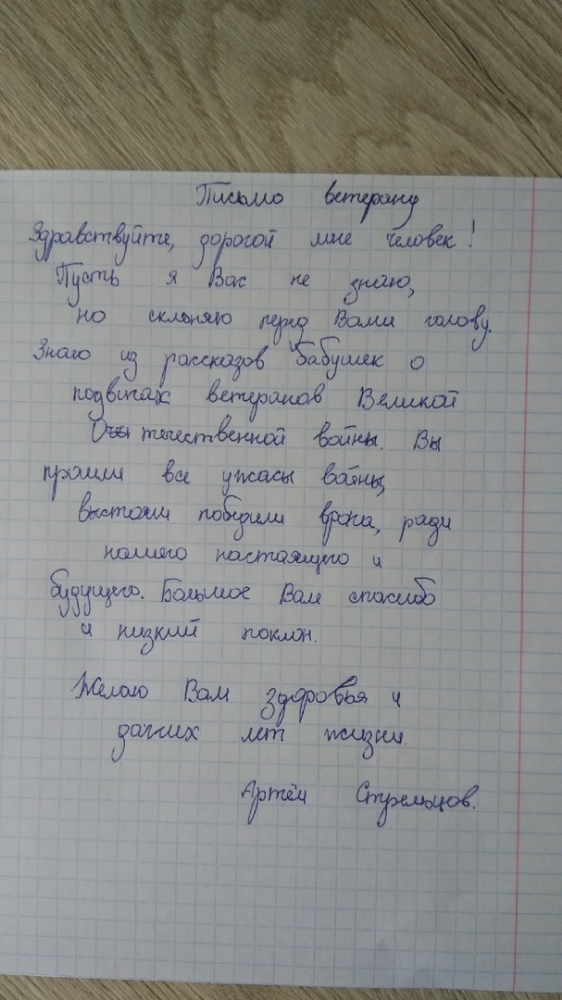 Письмо ветерану
Здравствуйте, дорогой мне человек!
Пусть я Вас не знаю,
но склоняю перед Вами голову.
Знаю из рассказов бабушек о
подвигах ветеранов Великой
Отечественной войны. Вы
прошли все ужасы войны,
выстояли победили врага, ради
нашего настоящего и
будущего. Большое Вам спасибо
и низкий поклон.
Желаю Вам здоровья и
долгих лет жизни.
Артём Стрельцов.